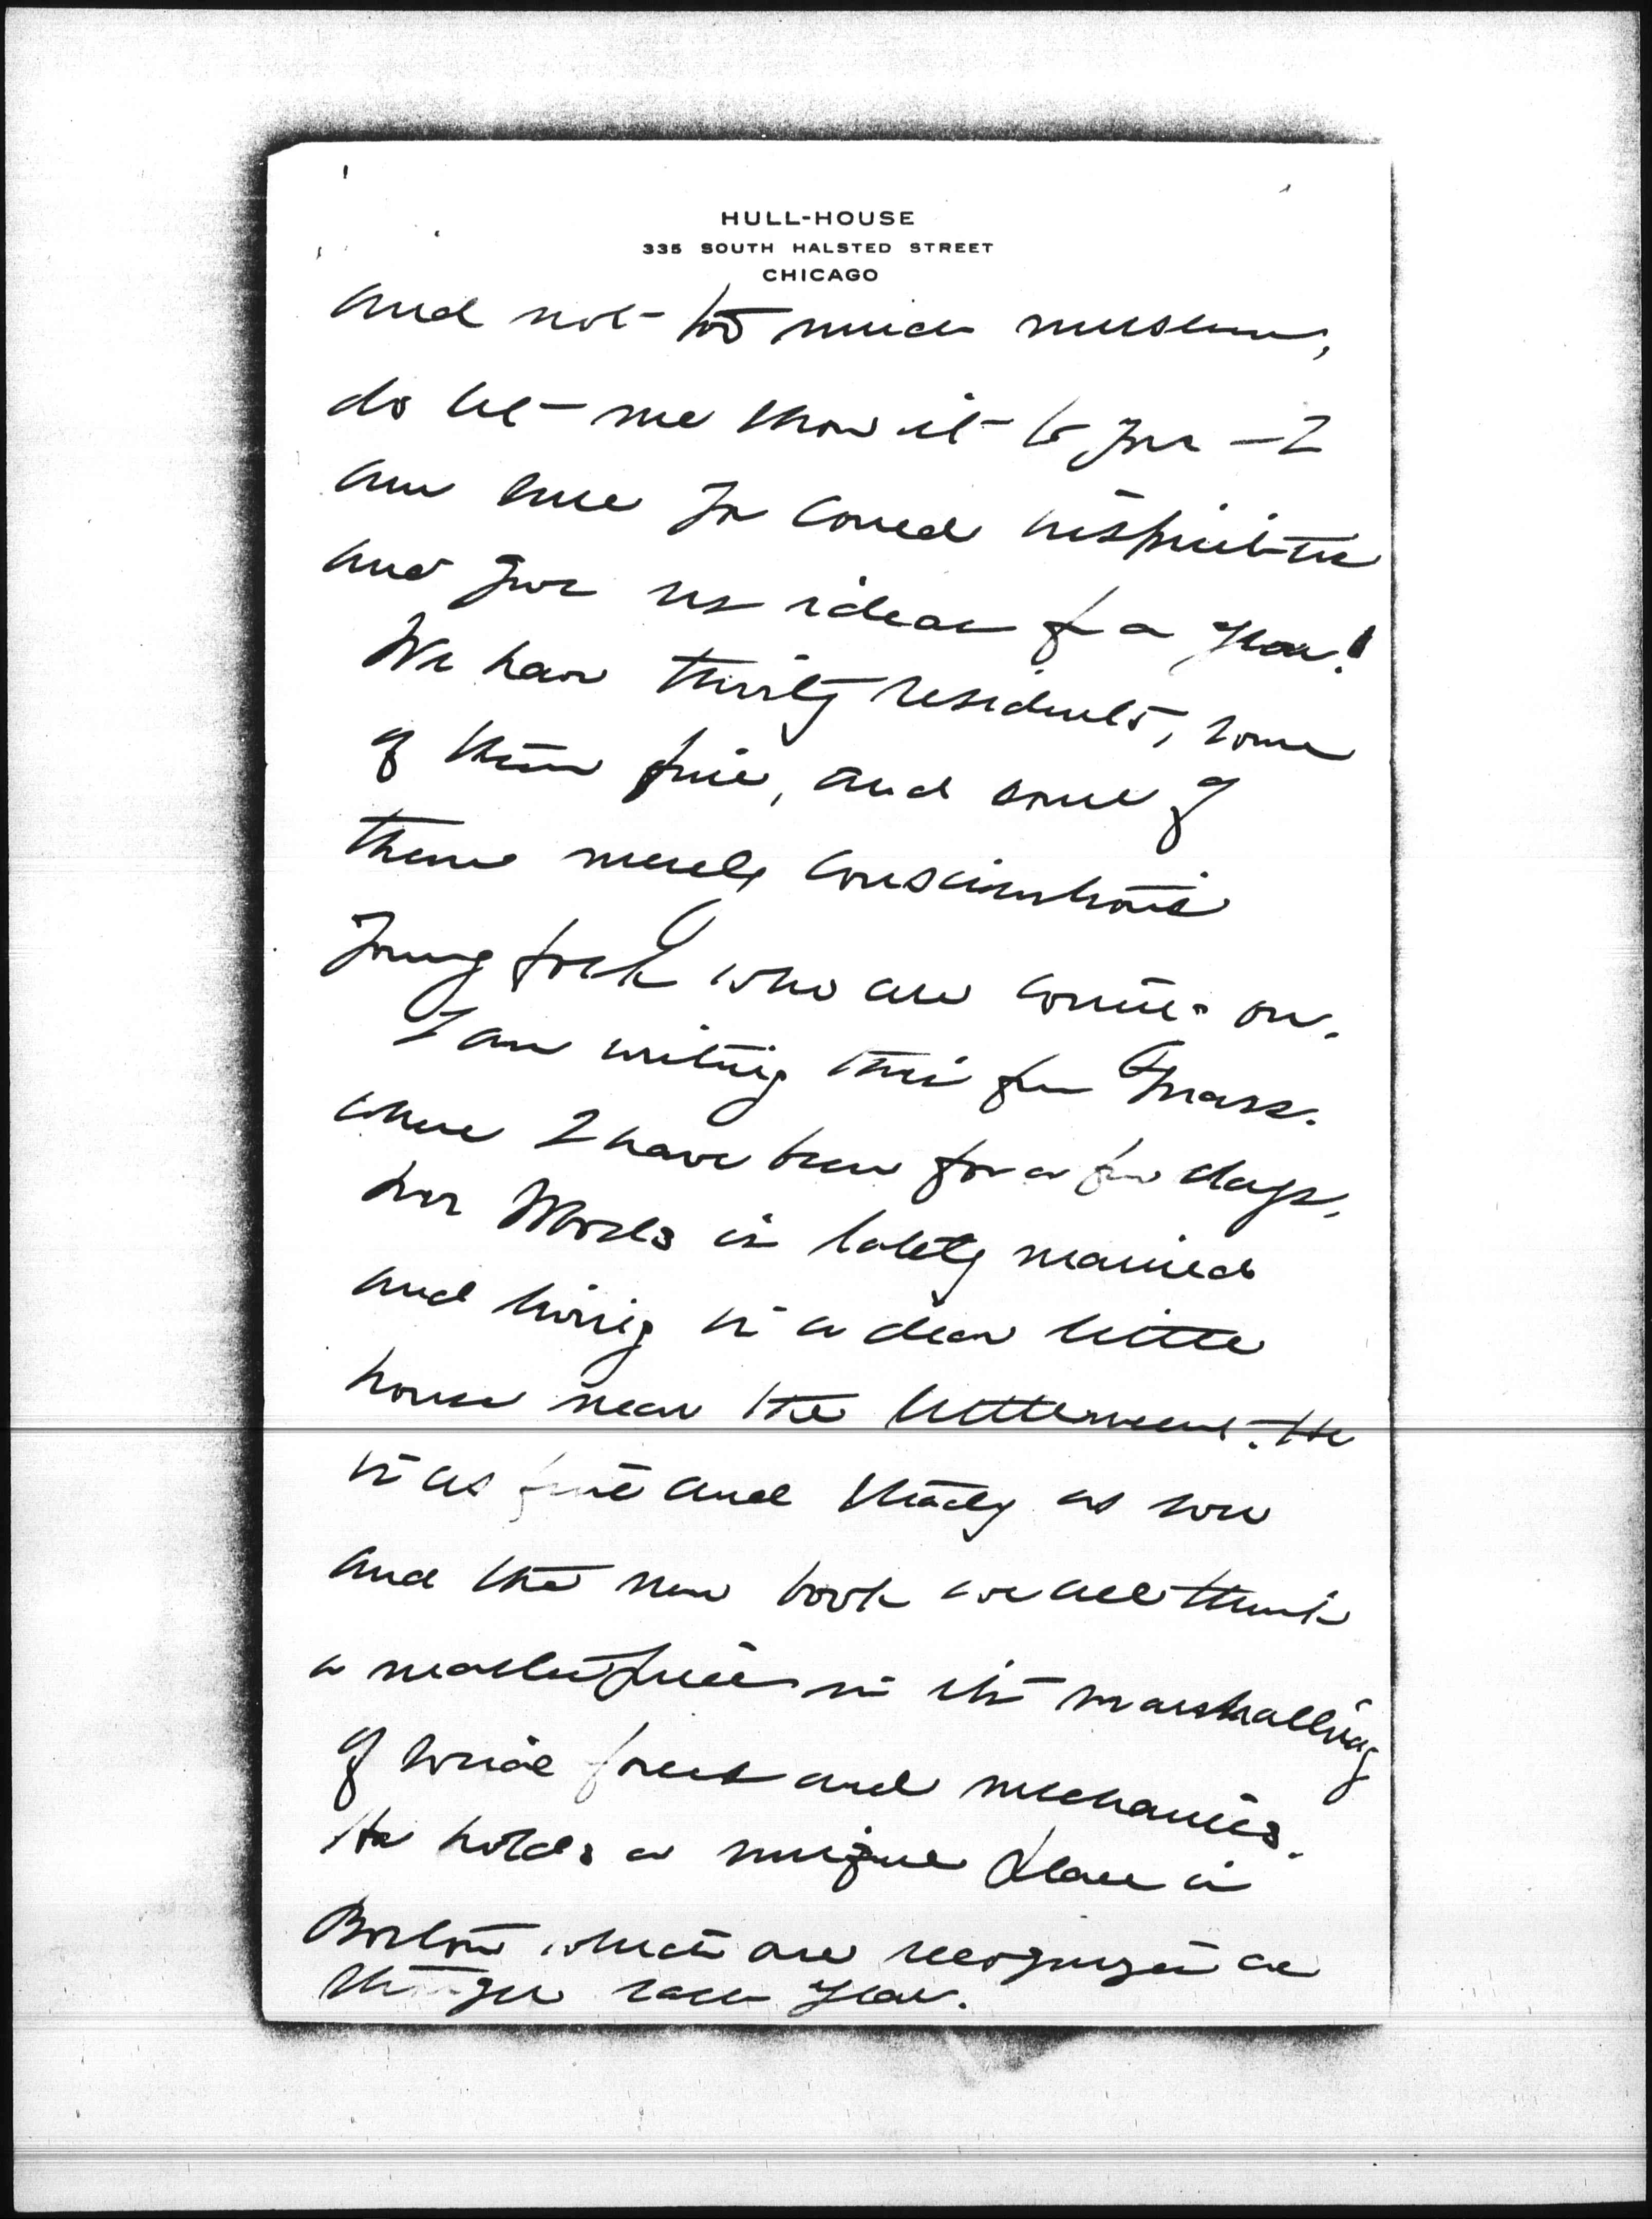 HULL-HOUSE
335 SOUTH HALSTED STREET
CHICAGO
and not too much museum,
do let me show it to you — I
am sure you could inspirit us
and give us ideas for a year!
We have thirty residents, some
of them fine, and some of
them merely conscientious
young folk who are coming on.
I am writing this from Mass.
where I have been for a few days.
Mr Woods is lately married
and living in a dear little
house near the settlement. He
is as fine and steady as ever
and the new book we all think
a masterpiece in its marshalling
of social forces and mechanics.
He holds a unique place in
Boston which are recognized as
stronger each year.